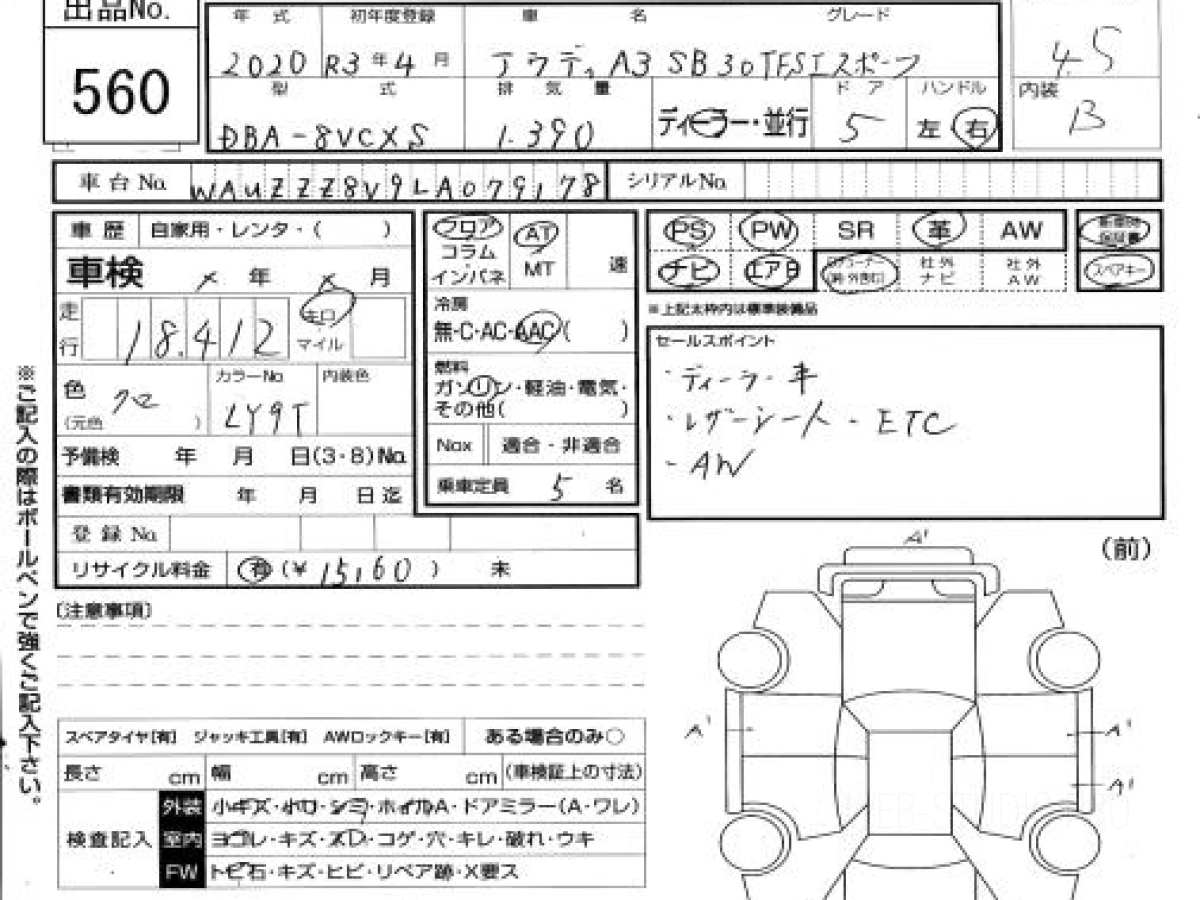 出品No.
560
年式 初年度登録 車名 グレード
2020 R3年4月 アウディ A3 SB 30TFSIスポーツ
4.5
型式 排気量 ディーラー・並行 ドア ハンドル
DBA-8VCXS 1.390 5 左 右
内装
B
車台No. WAUZZZ8V9LA079178 シリアルNo.
車歴 自家用・レンタ・( )
車検 × 年 × 月
走行 18.412 キロ マイル
色 クロ
(元色 )
カラーNo. LY9T
内装色
予備検 年 月 日(3・8)No.
書類有効期限 年 月 日迄
登録No.
リサイクル料金 有 (¥ 15,160 ) 未
フロア コラム インパネ AT MT 速
冷房
無・C・AC・AAC( )
燃料
ガソリン・軽油・電気・
その他( )
Nox 適合・非適合
乗車定員 5 名
PS PW SR 革 AW 新車時保証書
ナビ エアB 社外ナビ 社外AW スペアキー
※上記太枠内は標準装備品
セールスポイント
・ディーラー車
・レザーシート・ETC
・AW
※ご記入の際はボールペンで強くご記入下さい。
(注意事項)
(前)
A'
A'
A'
A'
スペアタイヤ[有] ジャッキ工具[有] AWロックキー[有] ある場合のみ○
長さ cm 幅 cm 高さ cm (車検証上の寸法)
検査記入
外装 小キズ・小凹・シミ・ホイルA・ドアミラー(A・ワレ)
室内 ヨゴレ・キズ・スレ・コゲ・穴・キレ・破れ・ウキ
FW トビ石・キズ・ヒビ・リペア跡・X要ス